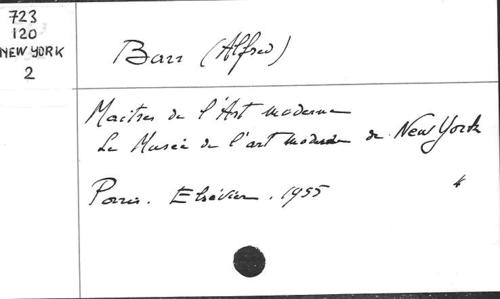 723
120
NEW YORK
2
Barr (Alfred)
Maitres de l'Art moderne
Le Musée de l'art moderne de New York
Paris. Elsévier. 1955